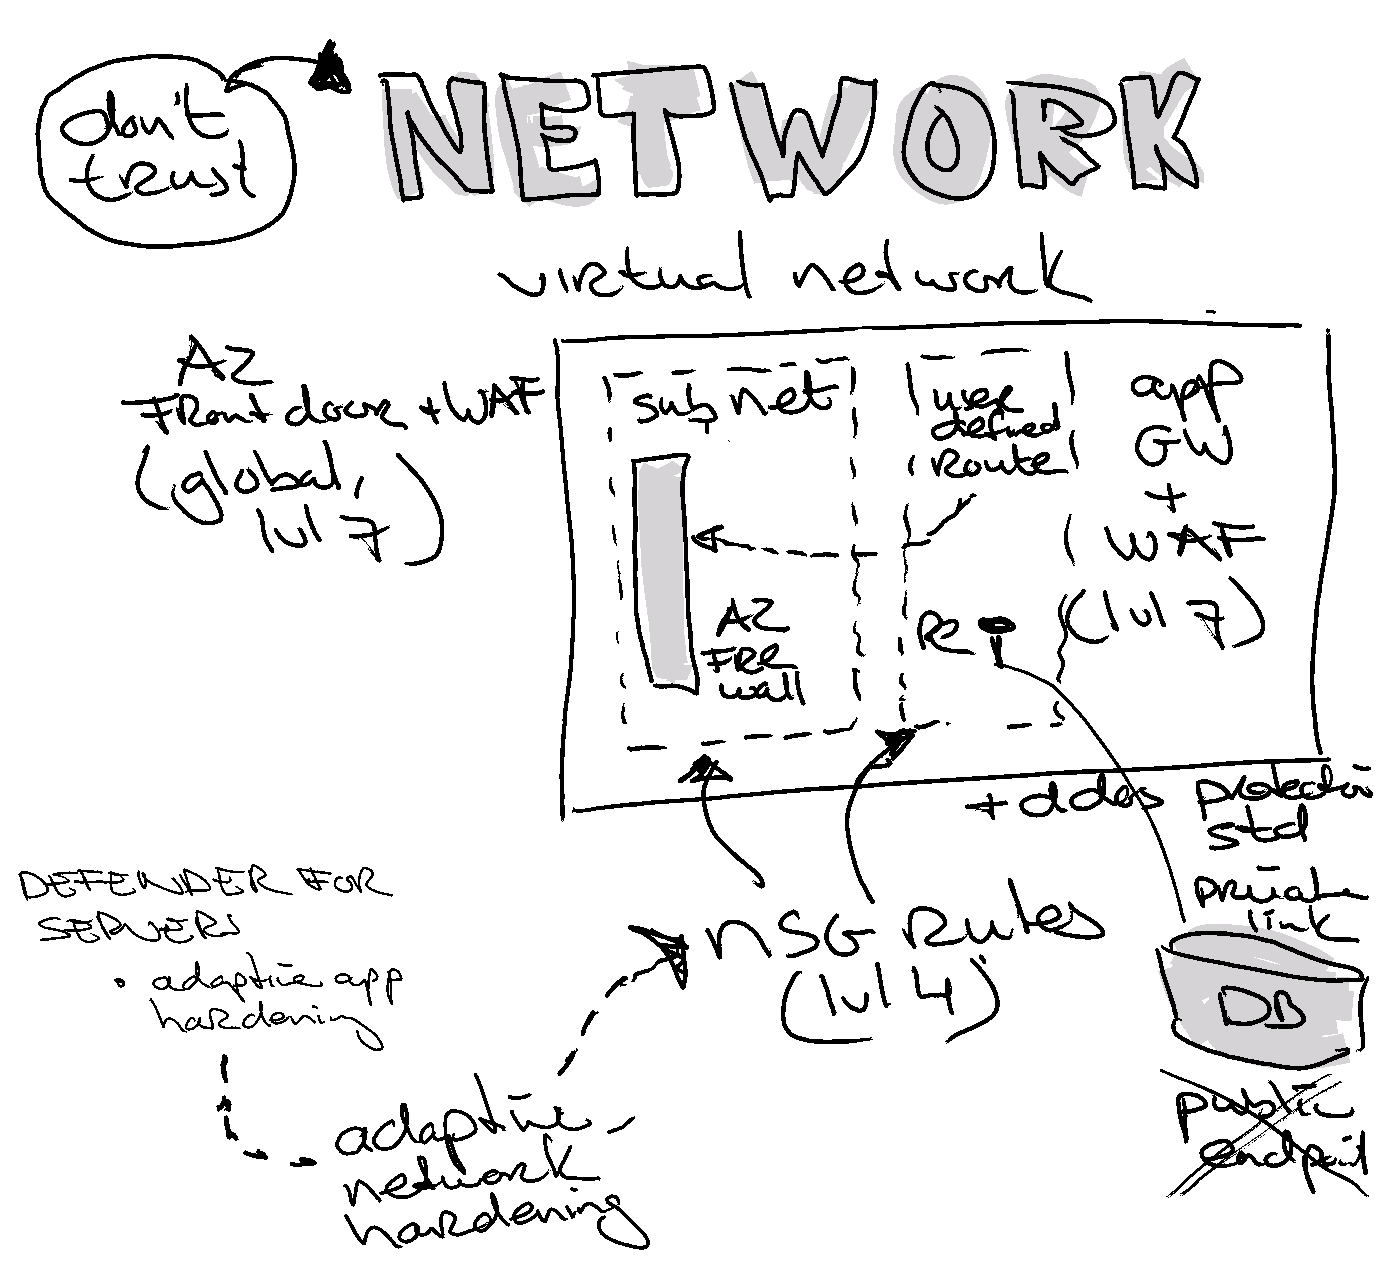 don't
trust
NETWORK
virtual network
AZ
Front door + WAF
(global,
lvl 7)
subnet
AZ
FRR
wall
user
defined
Route
app
GW
+
WAF
(lvl 7)
+ ddos protection
std
private
link
DB
public
endpoint
NSG Rules
(lvl 4)
DEFENDER FOR
SERVERS
• adaptive app
hardening
adaptive
network
hardening